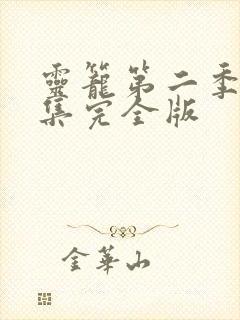 靈籠第二季
集完全版
金華山